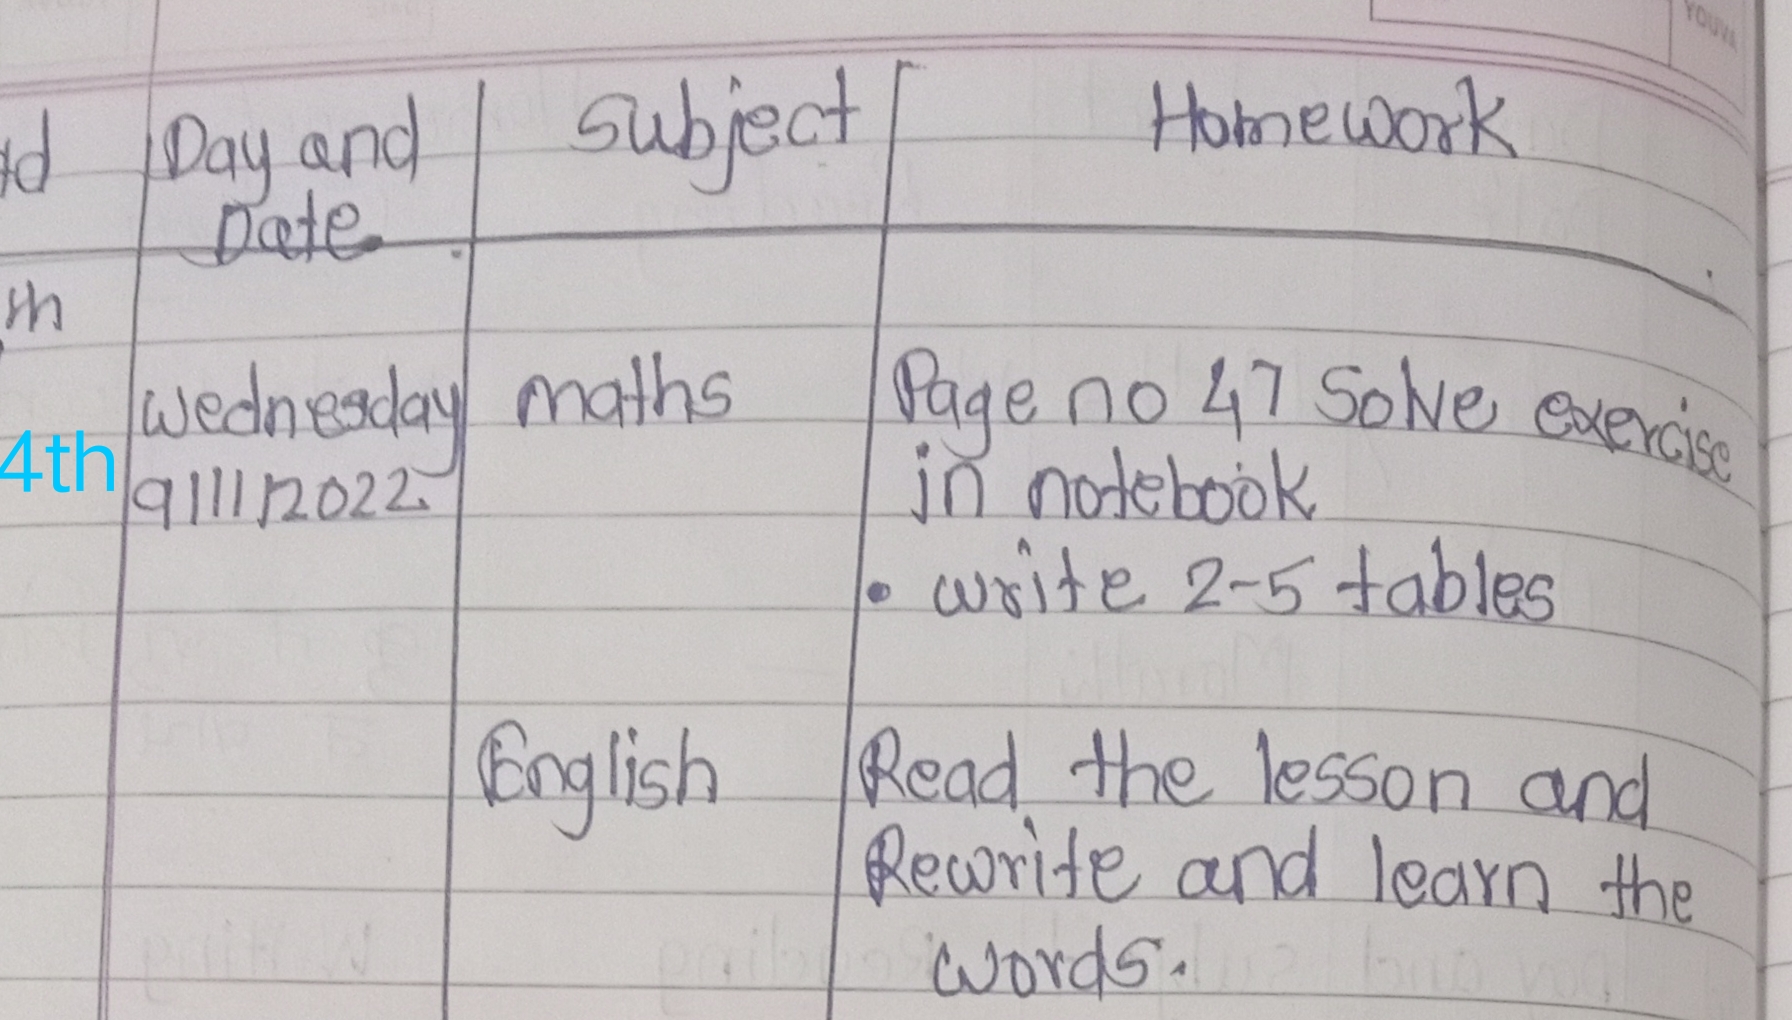 td Day and Subject Homework
Date
th
Wednesday maths Page no 47 Solve exercise
4th 9/11/2022 in notebook
• write 2-5 tables
English Read the lesson and
Rewrite and learn the
words.
YOUVA